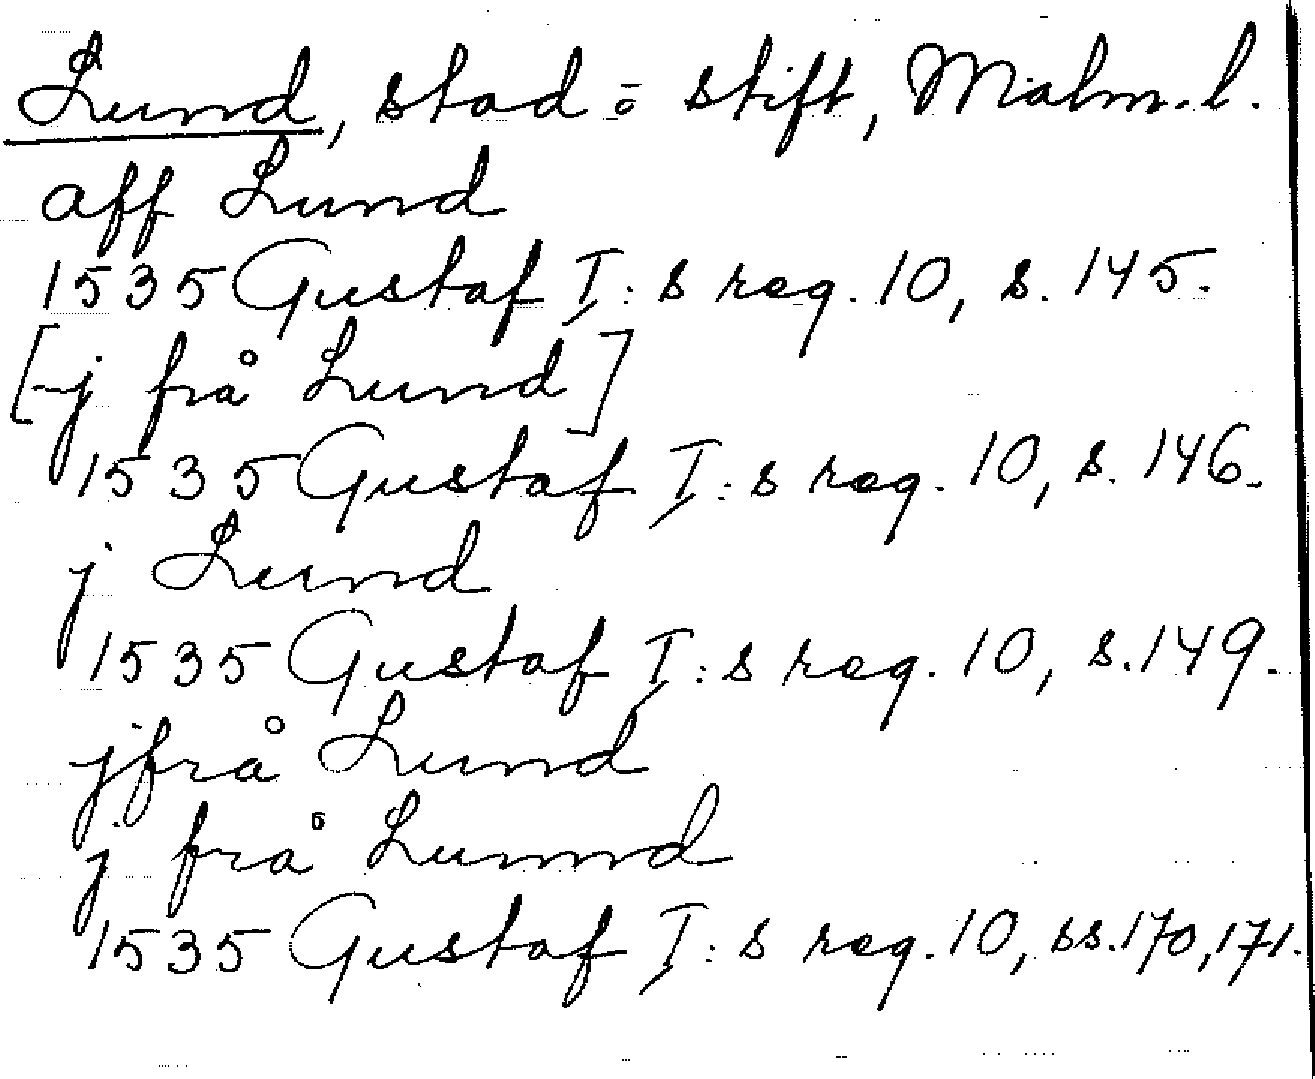 Lund, stad o stift, Malm. l.
aff Lund
1535 Gustaf I:s reg. 10, s. 145.
[-j frå Lund]
1535 Gustaf I:s reg. 10, s. 146.
j Lund
1535 Gustaf I:s reg. 10, s. 149.
jfrå Lund
j frå Lunnd
1535 Gustaf I:s reg. 10, ss. 170, 171.